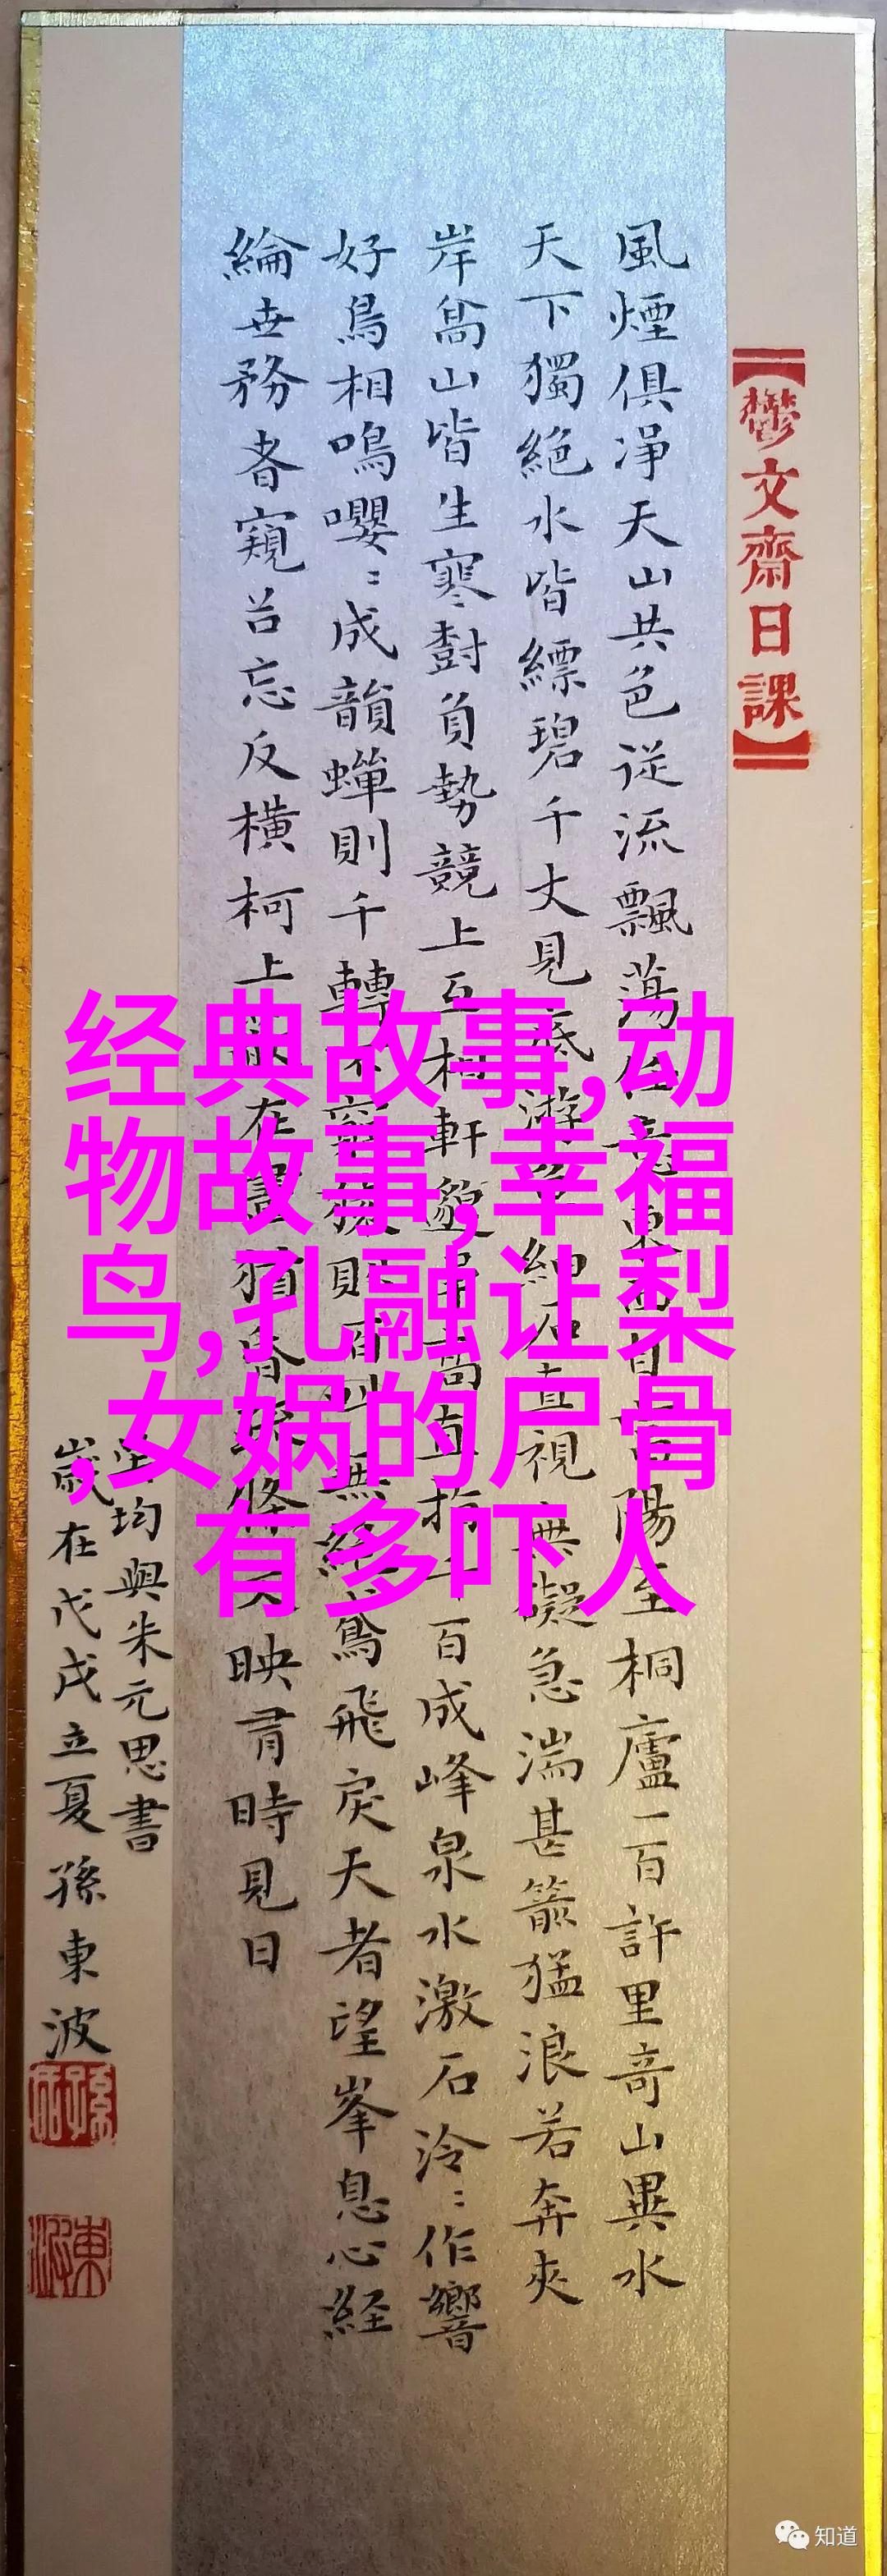 【鬱文齋日課】
風煙俱淨天山共色從流飄蕩任意東西自富陽至桐廬一百許里奇山異水
天下獨絕水皆縹碧千丈見底游魚細石直視無礙急湍甚箭猛浪若奔夾
岸高山皆生寒樹負勢競上互相軒邈爭高直指千百成峰泉水激石泠〻作響
好鳥相鳴嚶〻成韻蟬則千轉不窮猿則百叫無絕鳶飛戾天者望峯息心経
綸世務者窺谷忘反橫柯上蔽在晝猶昏疏條交映有時見日
吳均與朱元思書
歲在戊戌立夏孫東波
经典故事,动
物故事,幸福
鸟,孔融让梨
,女娲的尸骨
有多吓人
知道